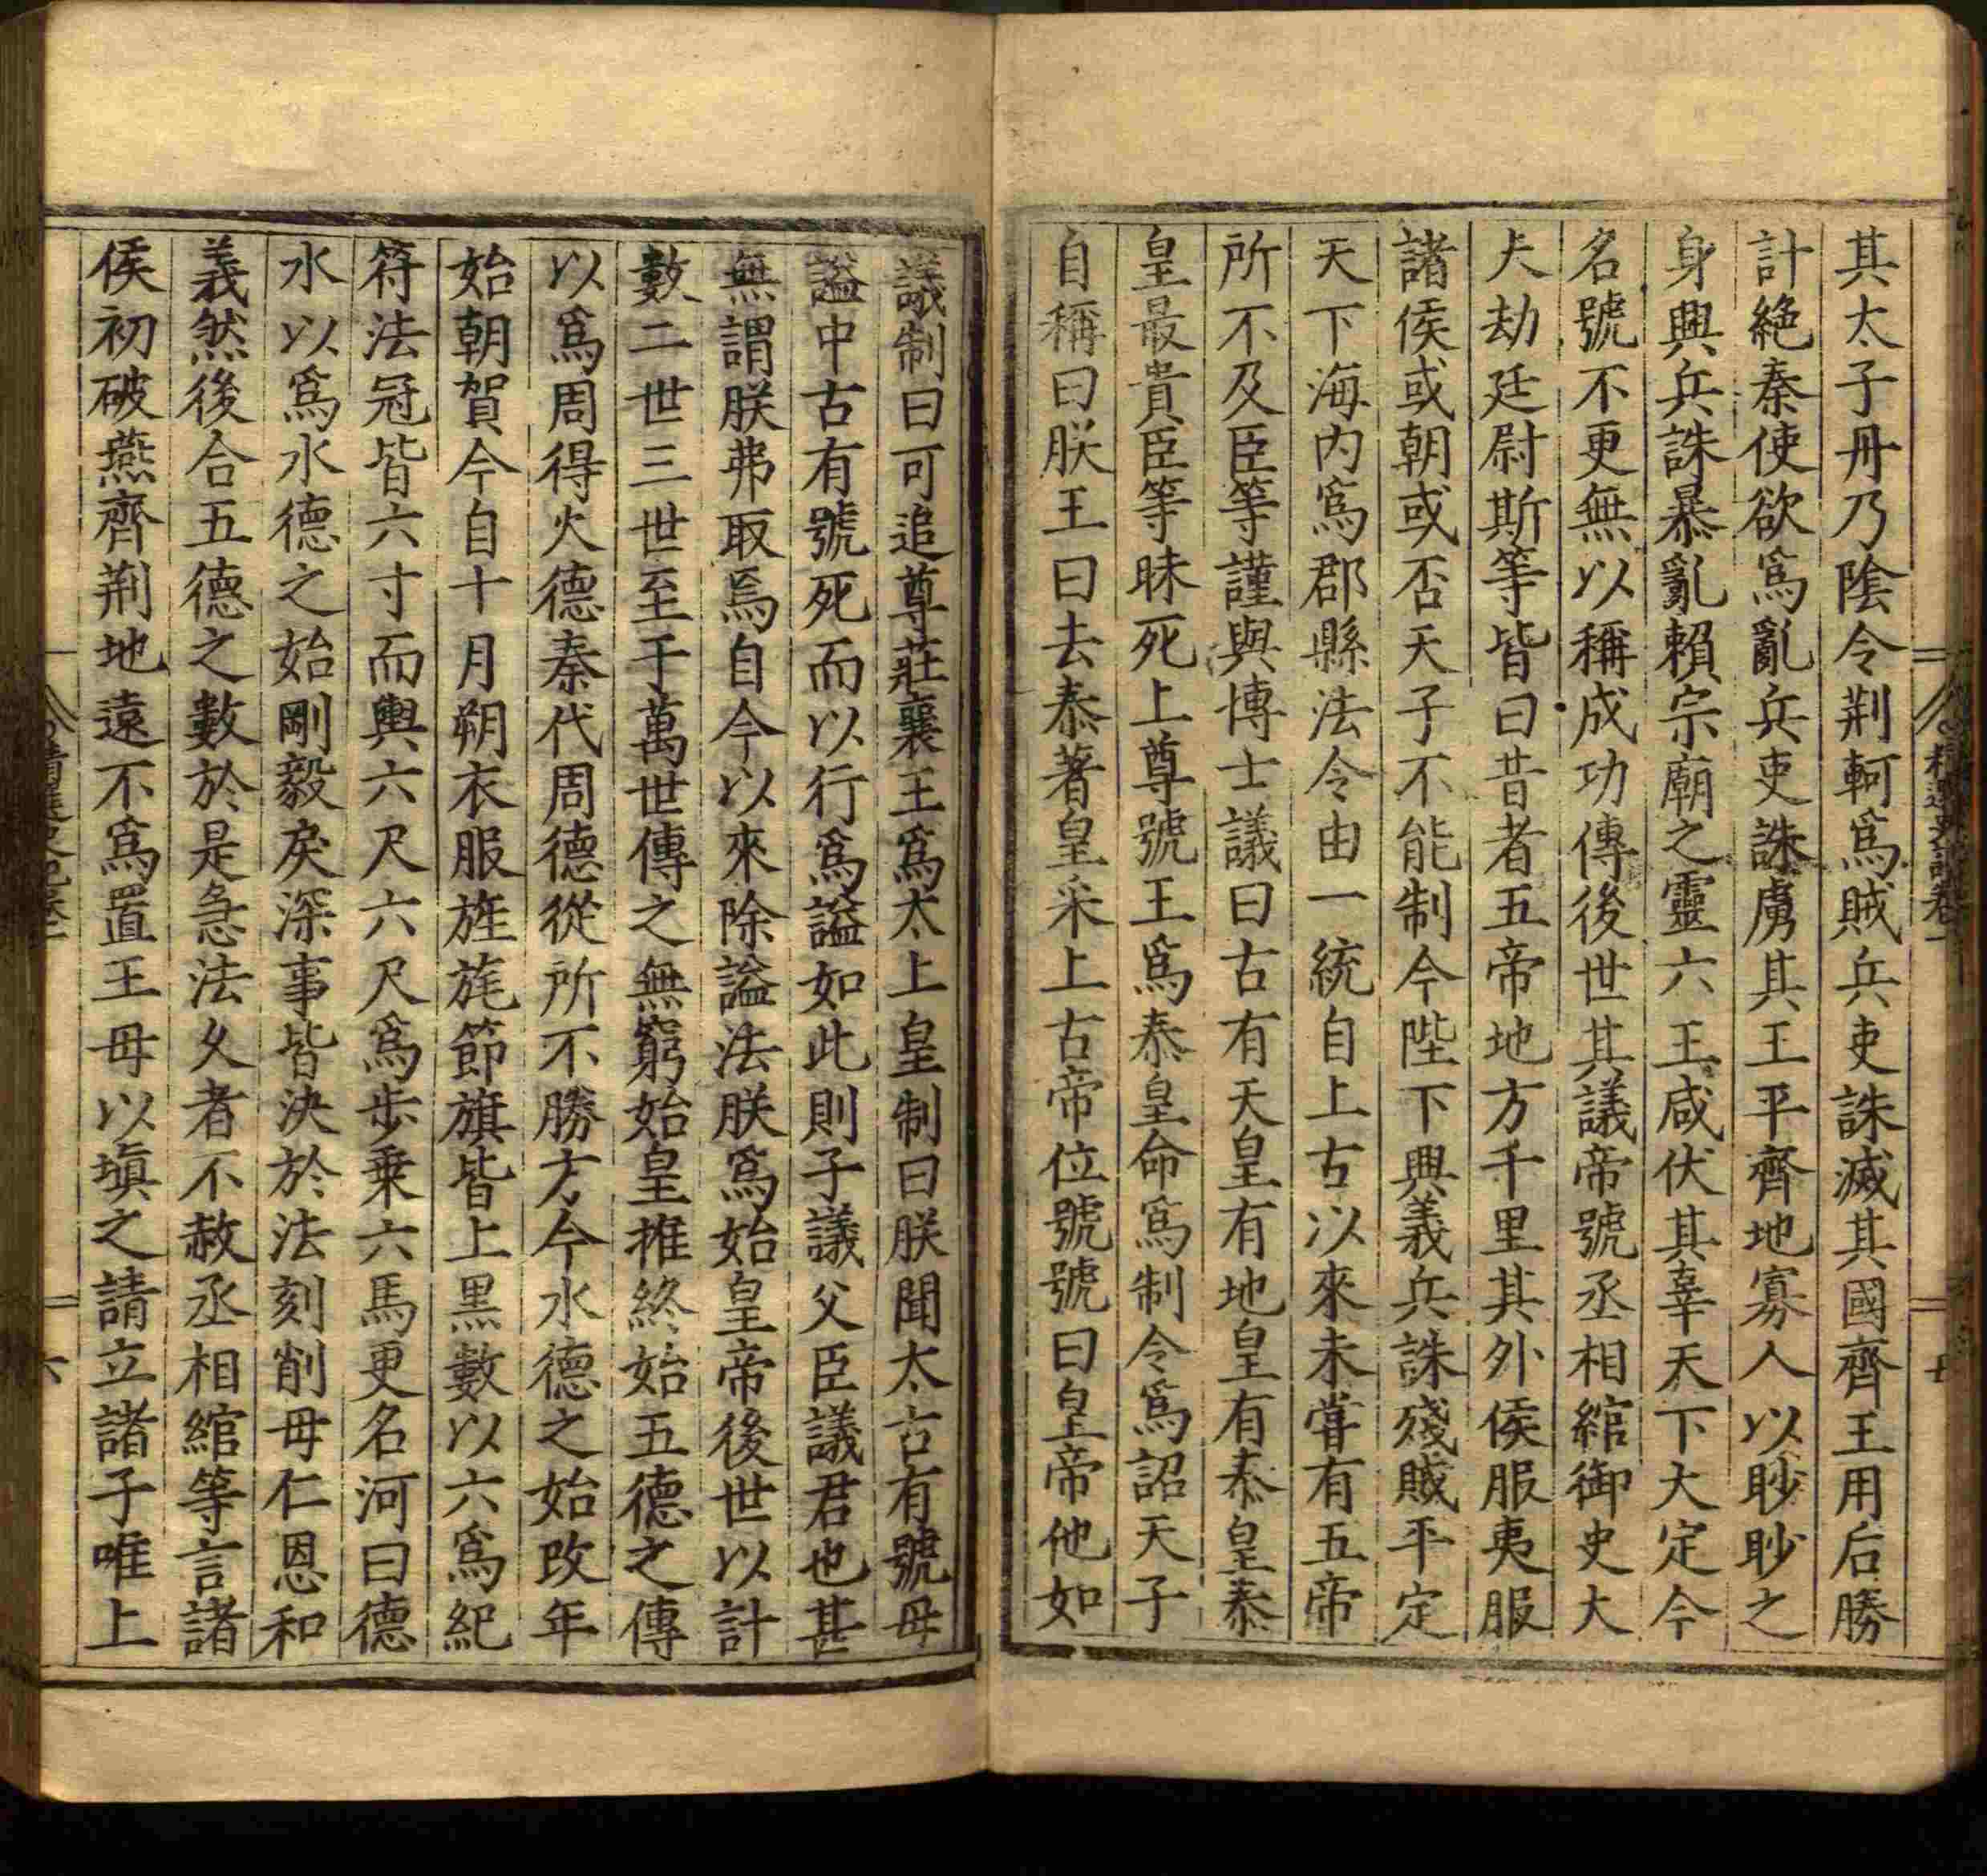 其太子丹乃陰令荆軻爲賊兵吏誅滅其國齊王用后勝
計絶秦使欲爲亂兵吏誅虜其王平齊地寡人以眇眇之
身興兵誅暴亂賴宗廟之靈六王咸伏其辜天下大定今
名號不更無以稱成功傳後世其議帝號丞相綰御史大
夫劫廷尉斯等皆曰昔者五帝地方千里其外侯服夷服
諸侯或朝或否天子不能制今陛下興義兵誅殘賊平定
天下海内爲郡縣法令由一統自上古以來未嘗有五帝
所不及臣等謹與博士議曰古有天皇有地皇有泰皇泰
皇最貴臣等昧死上尊號王爲泰皇命爲制令爲詔天子
自稱曰朕王曰去泰著皇采上古帝位號號曰皇帝他如
議制曰可追尊莊襄王爲太上皇制曰朕聞太古有號毋
謚中古有號死而以行爲謚如此則子議父臣議君也甚
無謂朕弗取焉自今以來除謚法朕爲始皇帝後世以計
數二世三世至于萬世傳之無窮始皇推終始五德之傳
以爲周得火德秦代周德從所不勝方今水德之始改年
始朝賀今自十月朔衣服旌旄節旗皆上黑數以六爲紀
符法冠皆六寸而輿六尺六尺爲歩乗六馬更名河曰德
水以爲水德之始剛毅戾深事皆決於法刻削毋仁恩和
義然後合五德之數於是急法久者不赦丞相綰等言諸
侯初破燕齊荆地遠不爲置王毋以塡之請立諸子唯上
六